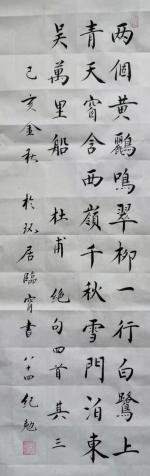 两個黄鸝鳴翠柳一行白鷺上
青天窗含西嶺千秋雪門泊東
吴萬里船 杜甫 絶句四首 其三
己亥金秋 於 居臨窗書 八十四 紀勉